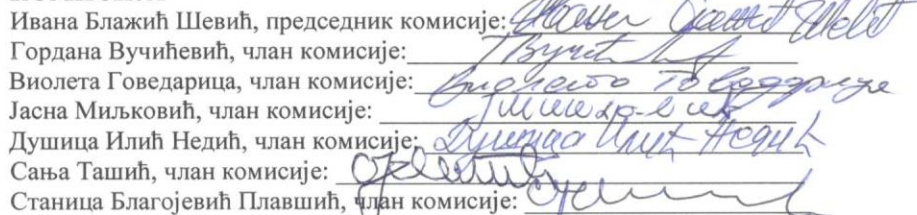 Ивана Блажић Шевић, председник комисије:
Гордана Вучићевић, члан комисије:
Виолета Говедарица, члан комисије: Виолета Говедарица
Јасна Миљковић, члан комисије:
Душица Илић Недић, члан комисије: Душица Илић Недић
Сања Ташић, члан комисије:
Станица Благојевић Плавшић, члан комисије: